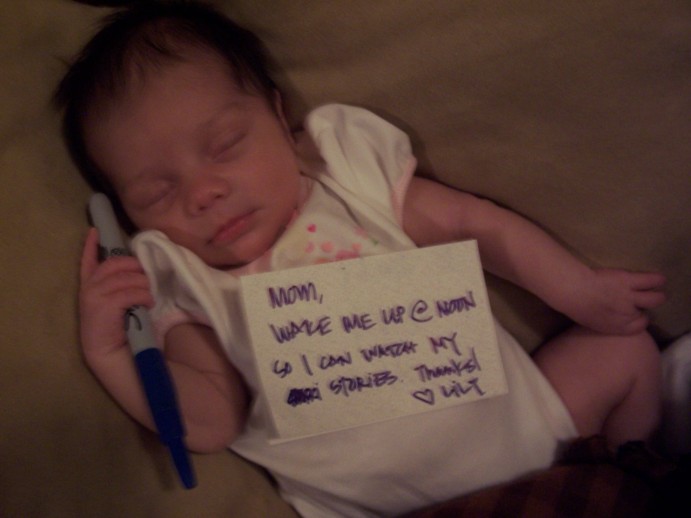 MOM,
WAKE ME UP @ NOON
SO I CAN WATCH MY
STORIES. THANKS!
♡ LILI